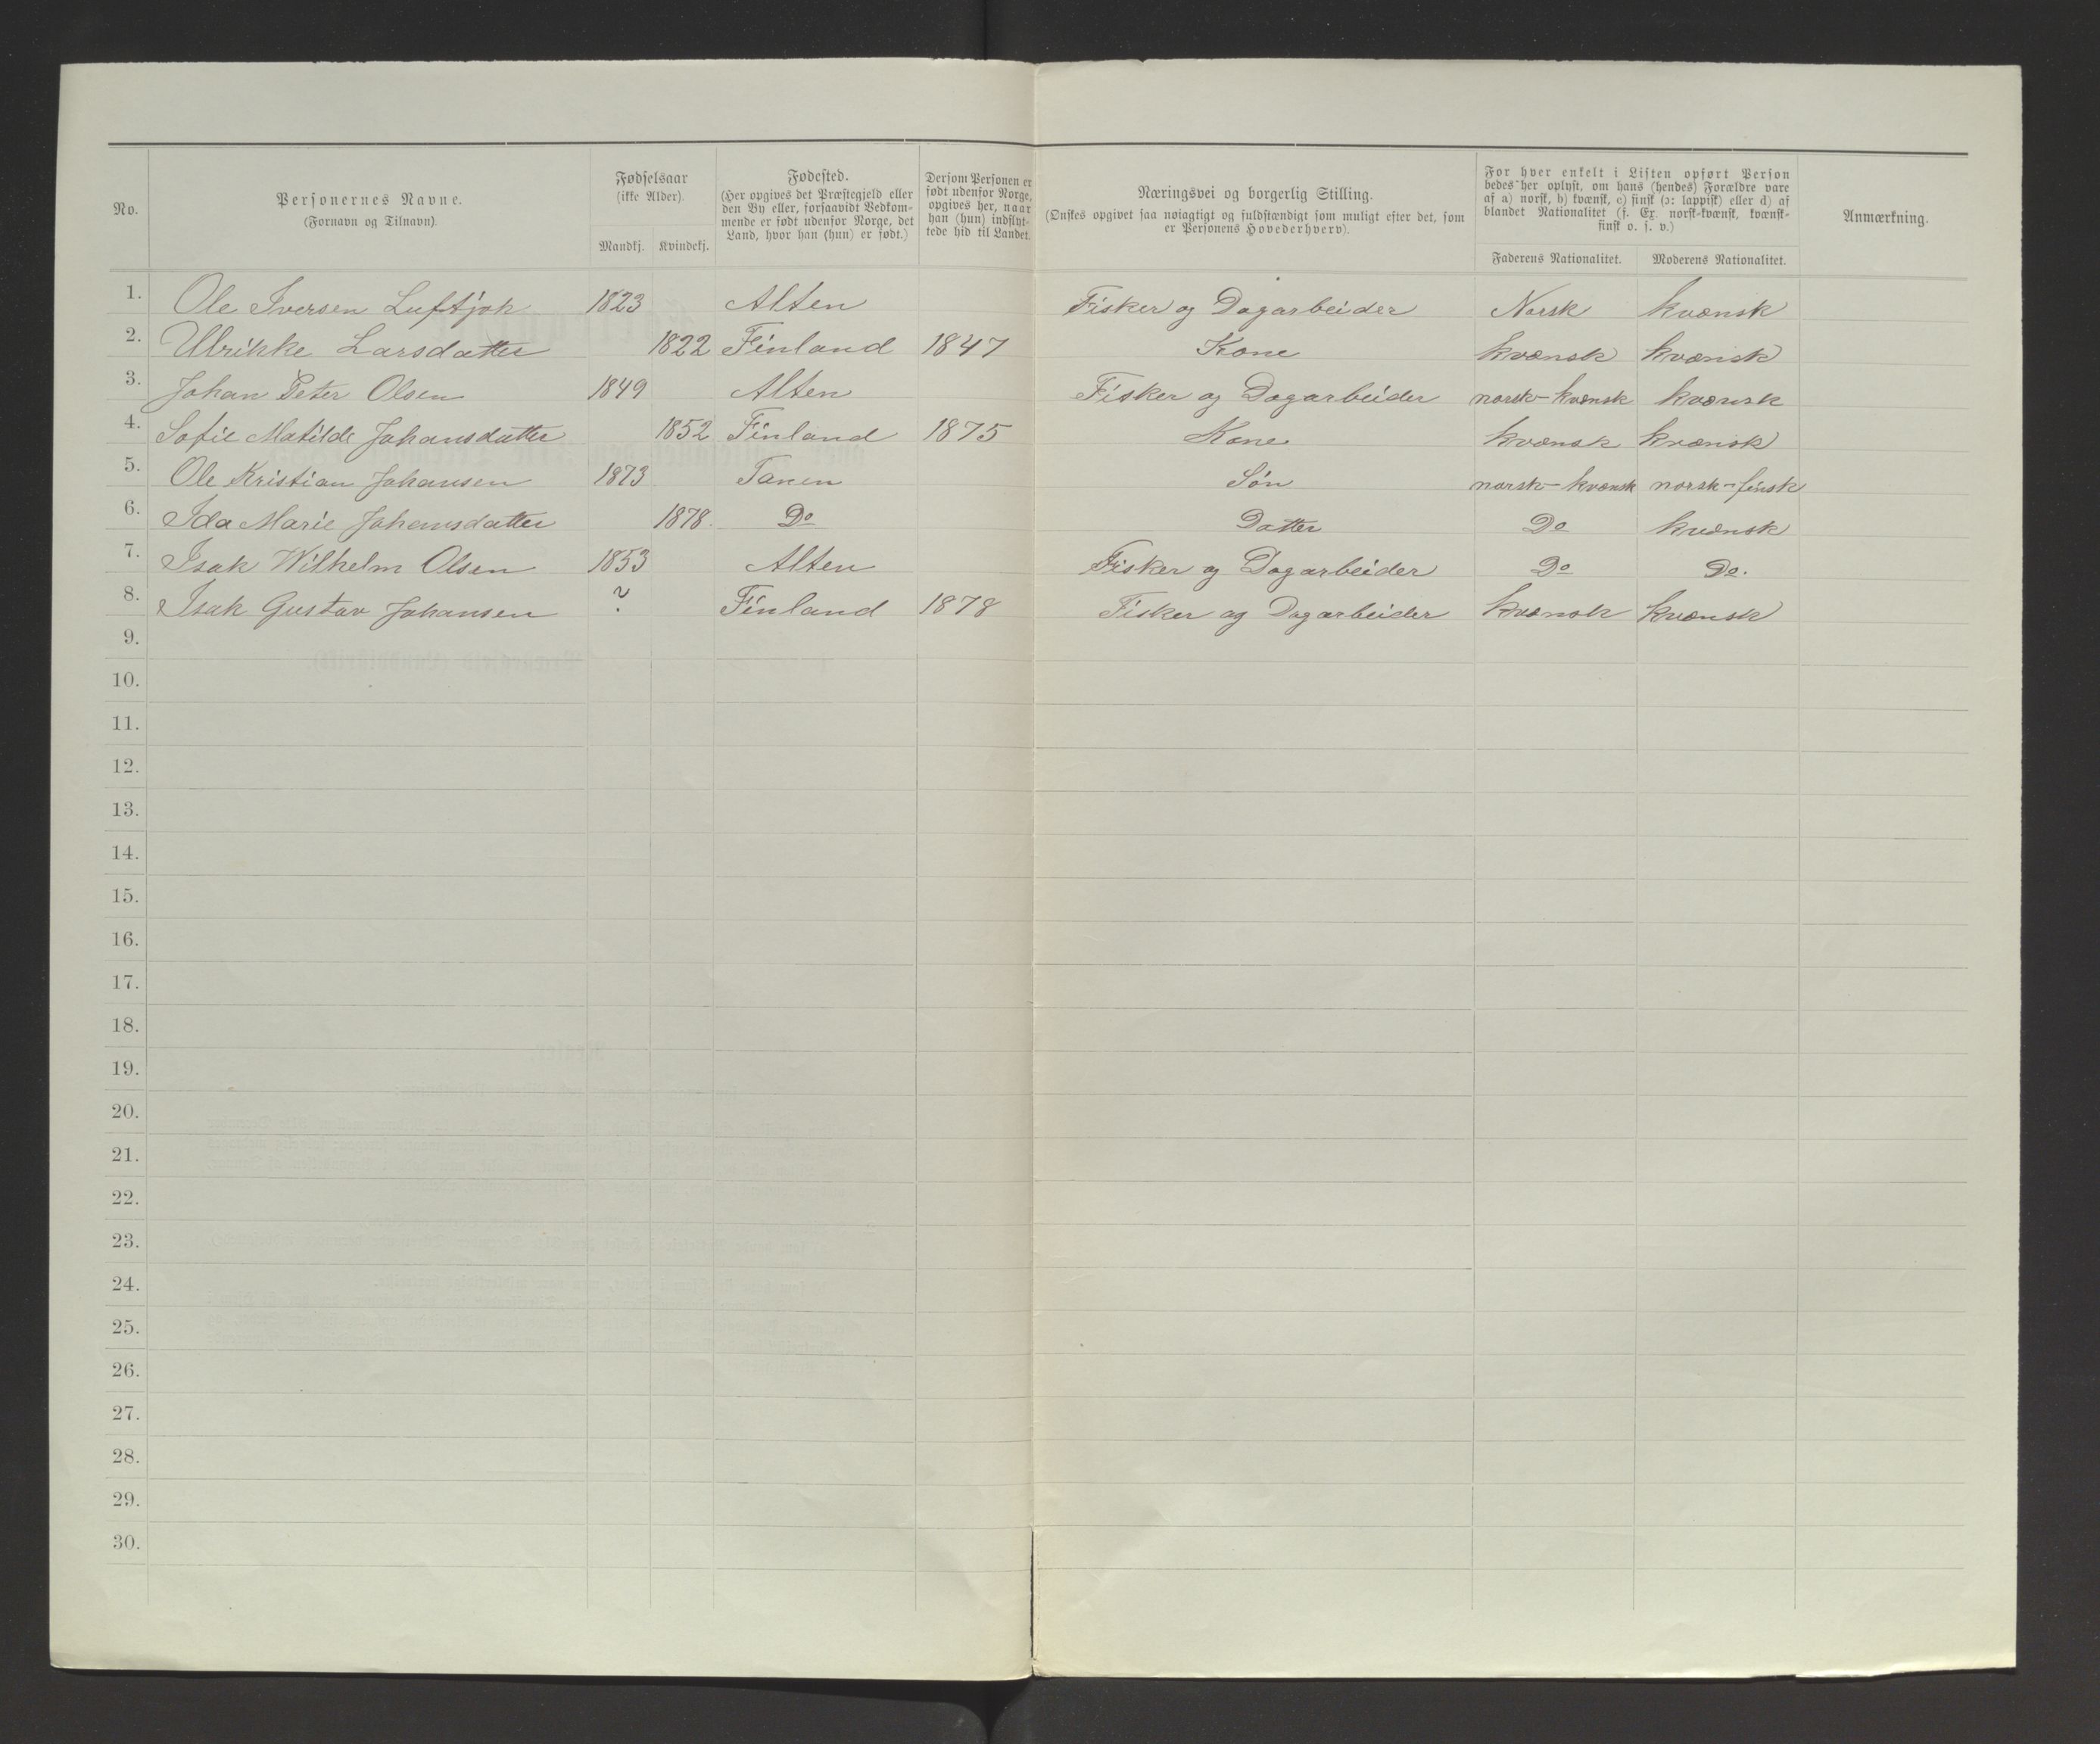 No.
Personernes Navne.
(Fornavn og Tilnavn).
Fødselsaar
(ikke Alder).
Mandkj. Kvindekj.
Fødested.
(Her opgives det Præstegjeld eller
den By eller, forsaavidt Vedkom-
mende er født udenfor Norge, det
Land, hvor han (hun) er født.)
Dersom Personen er
født udenfor Norge,
opgives her, naar
han (hun) indflyt-
tede hid til Landet.
Næringsvei og borgerlig Stilling.
(Ønskes opgivet saa nøiagtigt og fuldstændigt som muligt efter det, som
er Personens Hovederhverv).
For hver enkelt i Listen opført Person
bedes her oplyst, om hans (hendes) Forældre vare
af a) norsk, b) kvænsk, c) finsk (ɔ: lappisk) eller d) af
blandet Nationalitet (f. Ex. norsk-kvænsk, kvænsk-
finsk o. s. v.)
Faderens Nationalitet. Moderens Nationalitet.
Anmærkning.
1. Ole Iversen Luftjok 1823 Alten Fisker og Dagarbeider Norsk kvænsk
2. Ulrikke Larsdatter 1822 Finland 1847 Kone kvænsk kvænsk
3. Johan Peter Olsen 1849 Alten Fisker og Dagarbeider norsk-kvænsk kvænsk
4. Sofie Matilde Johansdatter 1852 Finland 1875 Kone kvænsk kvænsk
5. Ole Kristian Johansen 1873 Tanen Søn norsk-kvænsk norsk-finsk
6. Ida Marie Johansdatter 1878. Do Datter Do kvænsk
7. Isak Wilhelm Olsen 1853 Alten Fisker og Dagarbeider Do Do.
8. Isak Gustav Johansen ? Finland 1878 Fisker og Dagarbeider kvænsk kvænsk
9.
10.
11.
12.
13.
14.
15.
16.
17.
18.
19.
20.
21.
22.
23.
24.
25.
26.
27.
28.
29.
30.